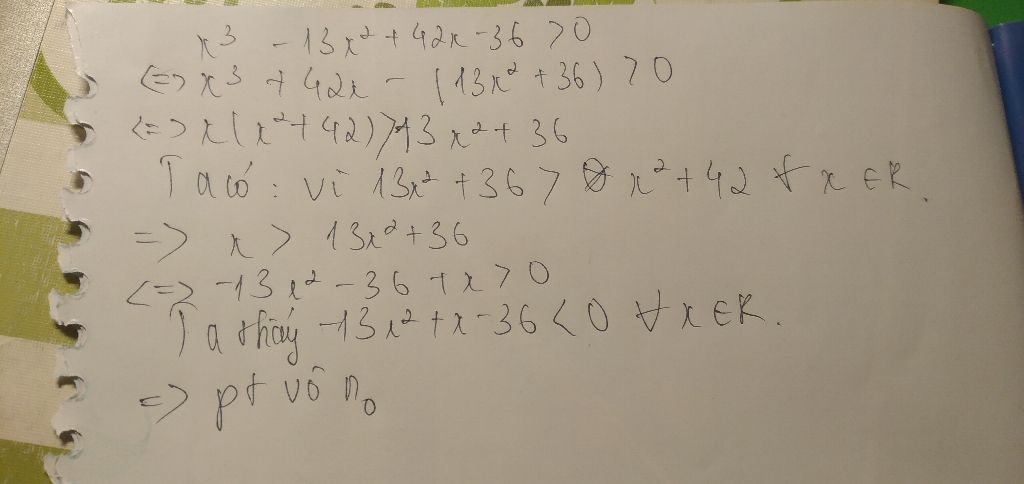 x³ - 13x² + 42x - 36 > 0
<=> x³ + 42x - (13x² + 36) > 0
<=> x(x² + 42) > 13x² + 36
Ta có: vì 13x² + 36 > x² + 42 ∀ x ∈ R.
=> x > 13x² + 36
<=> -13x² - 36 + x > 0
Ta thấy -13x² + x - 36 < 0 ∀ x ∈ R.
=> pt vô n₀